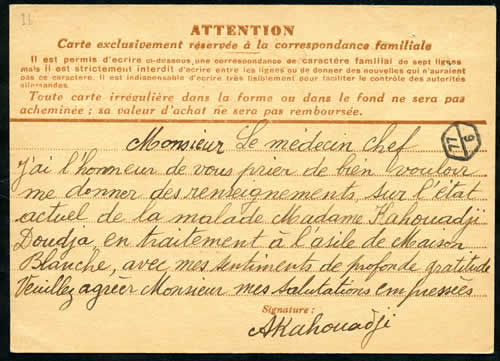 ATTENTION
Carte exclusivement réservée à la correspondance familiale
Il est permis d'écrire ci-dessous, une correspondance de caractère familial de sept lignes
mais il est strictement interdit d'écrire entre les lignes ou de donner des nouvelles qui n'auraient
pas ce caractère. Il est indispensable d'écrire très lisiblement pour faciliter le contrôle des autorités
allemandes.
Toute carte irrégulière dans la forme ou dans le fond ne sera pas
acheminée ; sa valeur d'achat ne sera pas remboursée.
Monsieur Le médecin chef
77
6
j'ai l'honneur de vous prier de bien vouloir
me donner des renseignements, sur l'état
actuel de la malade Madame Kahouadji
Doudja, en traitement à l'asile de Maison
Blanche, avec mes sentiments de profonde gratitude
Veuillez agréer Monsieur mes salutations empressées
Signature :
AKahouadji